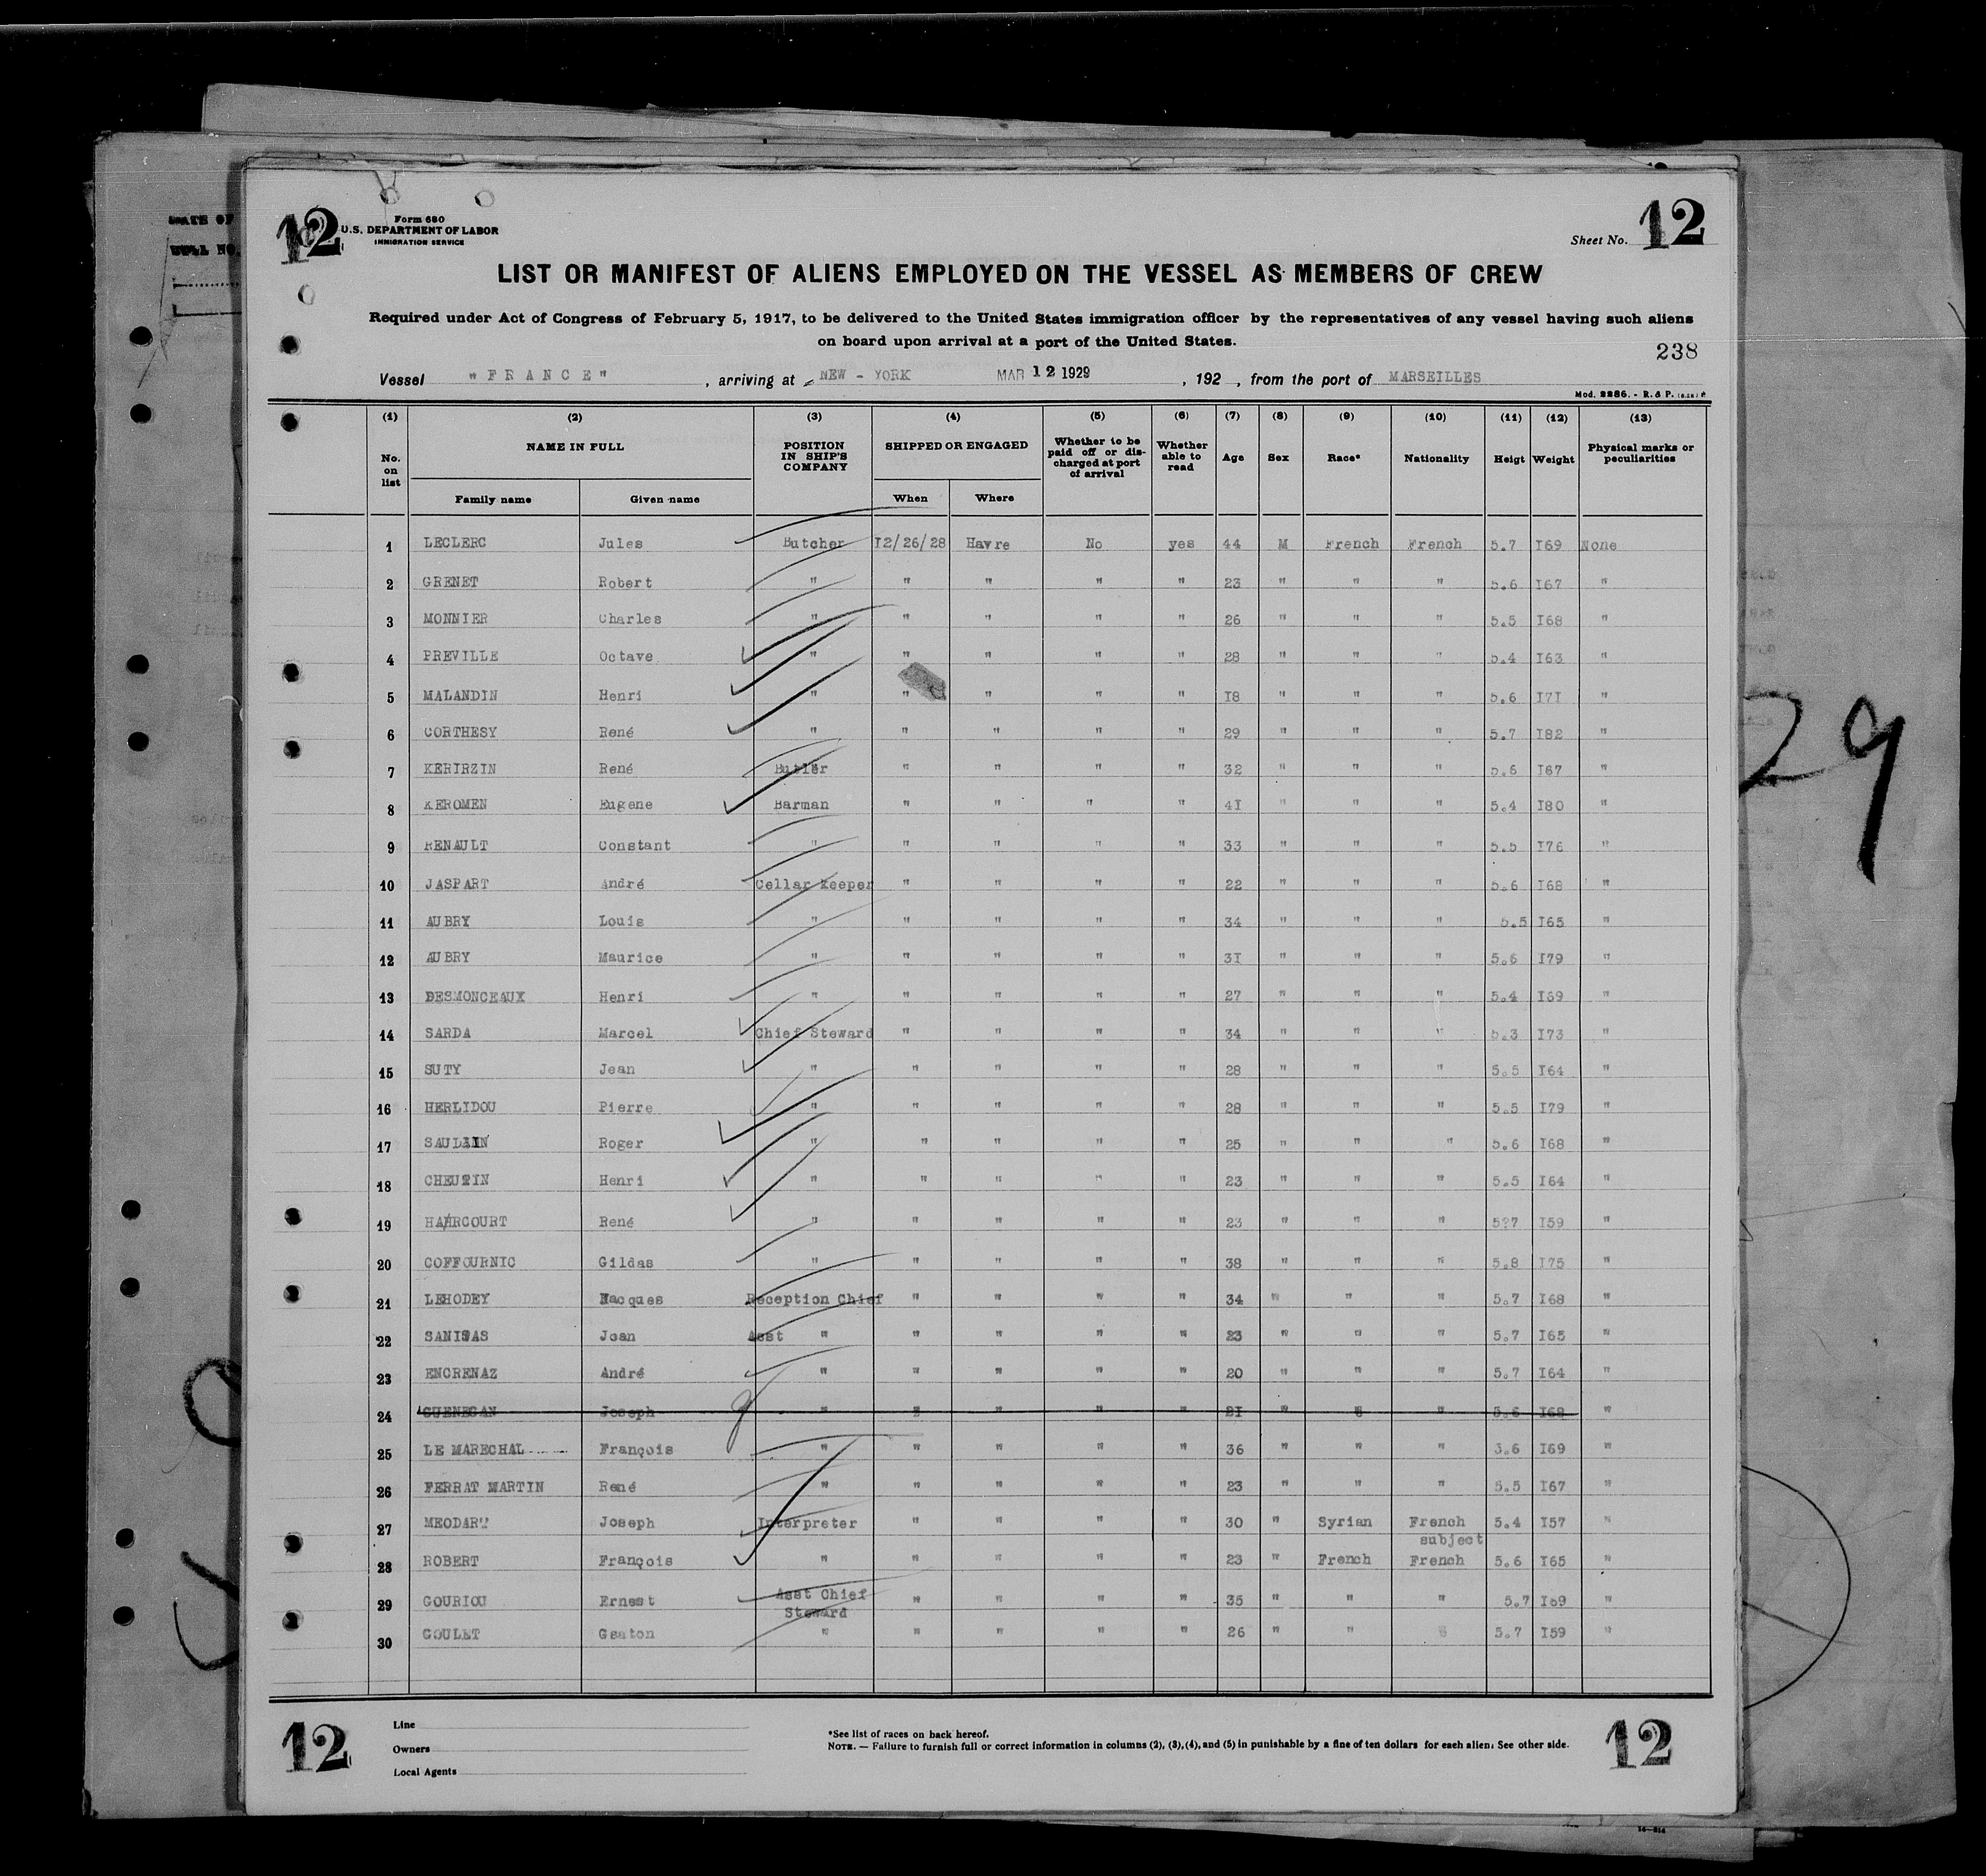 12
Form 680
U.S. DEPARTMENT OF LABOR
IMMIGRATION SERVICE
Sheet No. 12
LIST OR MANIFEST OF ALIENS EMPLOYED ON THE VESSEL AS MEMBERS OF CREW
Required under Act of Congress of February 5, 1917, to be delivered to the United States immigration officer by the representatives of any vessel having such aliens
on board upon arrival at a port of the United States.
238
Vessel "FRANCE", arriving at NEW - YORK MAR 12 1929, 192 , from the port of MARSEILLES
Mod. 2286. - R. & P.
(1) (2) (3) (4) (5) (6) (7) (8) (9) (10) (11) (12) (13)
No. on list NAME IN FULL POSITION IN SHIP'S COMPANY SHIPPED OR ENGAGED Whether to be paid off or discharged at port of arrival Whether able to read Age Sex Race* Nationality Heigt Weight Physical marks or peculiarities
Family name Given name When Where
1 LECLERC Jules Butcher I2/26/28 Havre No yes 44 M French French 5.7 I69 None
2 GRENET Robert " " " " " 23 " " " 5.6 I67 "
3 MONNIER Charles " " " " " 26 " " " 5.5 I68 "
4 PREVILLE Octave " " " " " 28 " " " 5.4 I63 "
5 MALANDIN Henri " " " " " I8 " " " 5.6 I7I "
6 CORTHESY René " " " " " 29 " " " 5.7 I82 "
7 KERIRZIN René Butler " " " " 32 " " " 5.6 I67 "
8 KEROMEN Eugene Barman " " " " 4I " " " 5.4 I80 "
9 RENAULT Constant " " " " " 33 " " " 5.5 I76 "
10 JASPART André Cellar keeper " " " " 22 " " " 5.6 I68 "
11 AUBRY Louis " " " " " 34 " " " 5.5 I65 "
12 AUBRY Maurice " " " " " 3I " " " 5.6 I79 "
13 DESMONCEAUX Henri " " " " " 27 " " " 5.4 I69 "
14 SARDA Marcel Chief Steward " " " " 34 " " " 5.3 I73 "
15 SUTY Jean " " " " " 28 " " " 5.5 I64 "
16 HERLIDOU Pierre " " " " " 28 " " " 5.5 I79 "
17 Roger " " " " " 25 " " " 5.6 I68 "
18 Henri " " " " " 23 " " " 5.5 I64 "
19 HAHRCOURT René " " " " " 23 " " " 5?7 I59 "
20 COFFOURNIC Gildas " " " " " 38 " " " 5.8 I75 "
21 LEHODEY Jacques Reception Chief " " " " 34 " " " 5.7 I68 "
22 Jean Asst " " " " " 23 " " " 5.7 I65 "
23 ENCRENAZ André " " " " " 20 " " " 5.7 I64 "
24 GUENEGAN Joseph " " " " 2I " " 5.6 I68 "
25 LE MARECHAL François " " " " " 36 " " " 3.6 I69 "
26 FERRAT MARTIN René " " " " " 23 " " " 5.5 I67 "
27 MEODART Joseph Interpreter " " " " 30 " Syrian French subject 5.4 I57 "
28 ROBERT François " " " " " 23 " French French 5.6 I65 "
29 GOURIOU Ernest Asst Chief Steward " " " " 35 " " " 5.7 I69 "
30 GOULET Gsaton " " " " " 26 " " 5.7 I59 "
12
Line
Owners
Local Agents
*See list of races on back hereof.
NOTE. — Failure to furnish full or correct information in columns (2), (3), (4), and (5) in punishable by a fine of ten dollars for each alien. See other side.
12
29